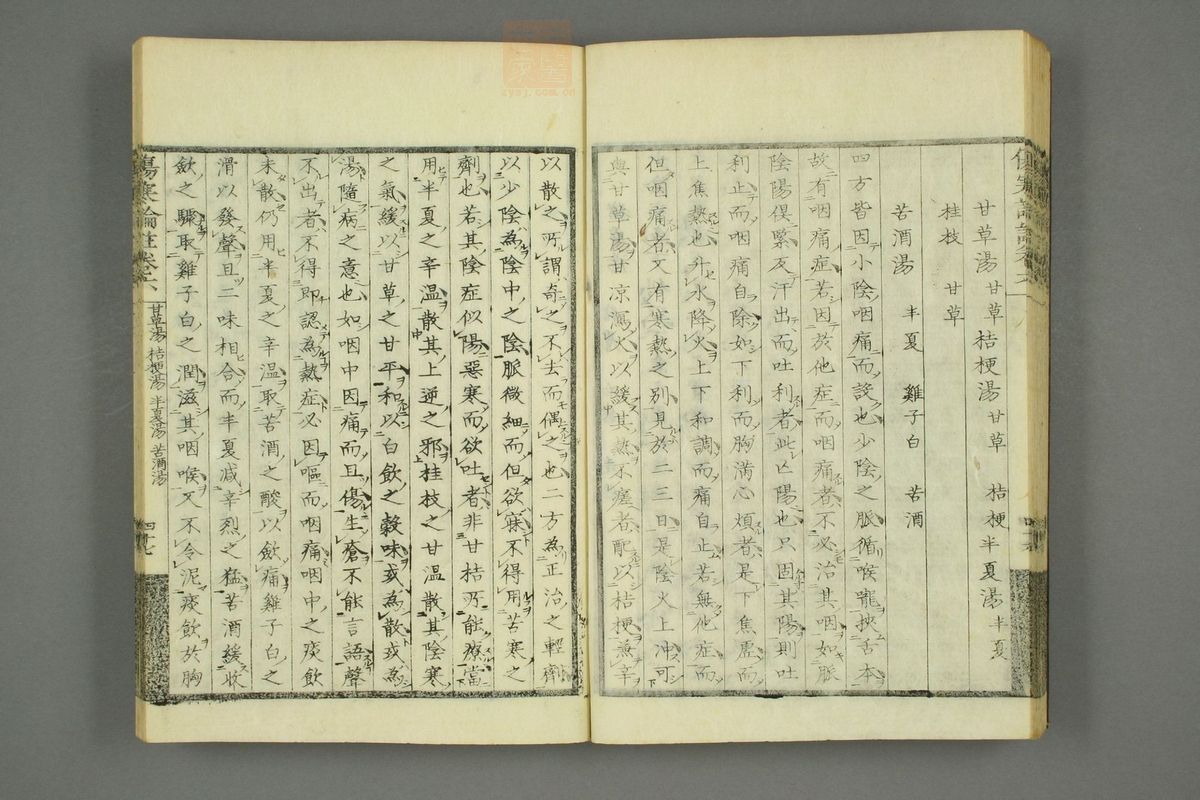 甘草湯 甘草 桔梗湯 甘草 桔梗 半夏湯 半夏
桂枝 甘草
苦酒湯 半夏 雞子白 苦酒
四方皆因少陰咽痛而設也少陰之脈循喉嚨挾舌本
故有咽痛症若因於他症而咽痛者不必治其咽如脈
陰陽俱緊反汗出而吐利者此亡陽也只固其陽則吐
利止而咽痛自除如下利而胸滿心煩者是下焦虛而
上焦熱也升水降火上下和調而痛自止若無他症而
但咽痛者又有寒熱之別見於二三日是陰火上冲可
與甘草湯甘凉瀉火以緩其熱不瘥者配以桔梗兼辛
以散之所謂奇之不去而偶之也二方為正治之輕劑
以少陰為陰中之陰脈微細而但欲寐不得用苦寒之
劑也若其陰症似陽惡寒而欲吐者非甘桔所能療當
用半夏之辛温散其上逆之邪桂枝之甘温散其陰寒
之氣緩以甘草之甘平和以白飲之穀味或為散或為
湯隨病之意也如咽中因痛而且傷生瘡不能言語聲
不出者不得即認為熱症必因嘔而咽痛咽中之痰飲
未散仍用半夏之辛温取苦酒之酸以斂痛雞子白之
滑以發聲且二味相合而半夏減辛烈之猛苦酒緩收
斂之驟取雞子白之潤滋其咽喉又不令泥痰飲於胸
傷寒論註卷之六 甘草湯 桔梗湯 半夏湯 苦酒湯 四十七
zysj.com.cn